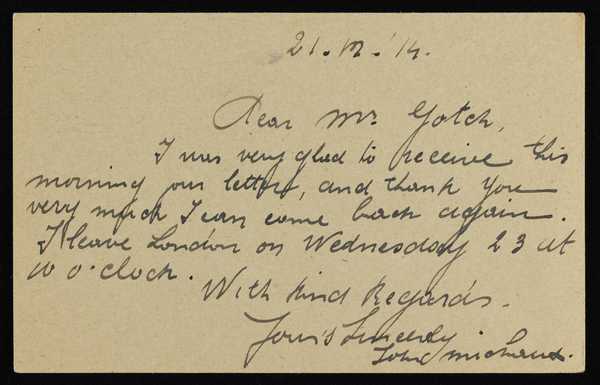 21.12.'14.
Dear Mr. Gotch,
I was very glad to receive this
morning our letter, and thank You
very much I can come back again.
I leave London on Wednesday 23 at
10 o'clock.
With kind Regards.
Your's Sincerely
John Michaux.